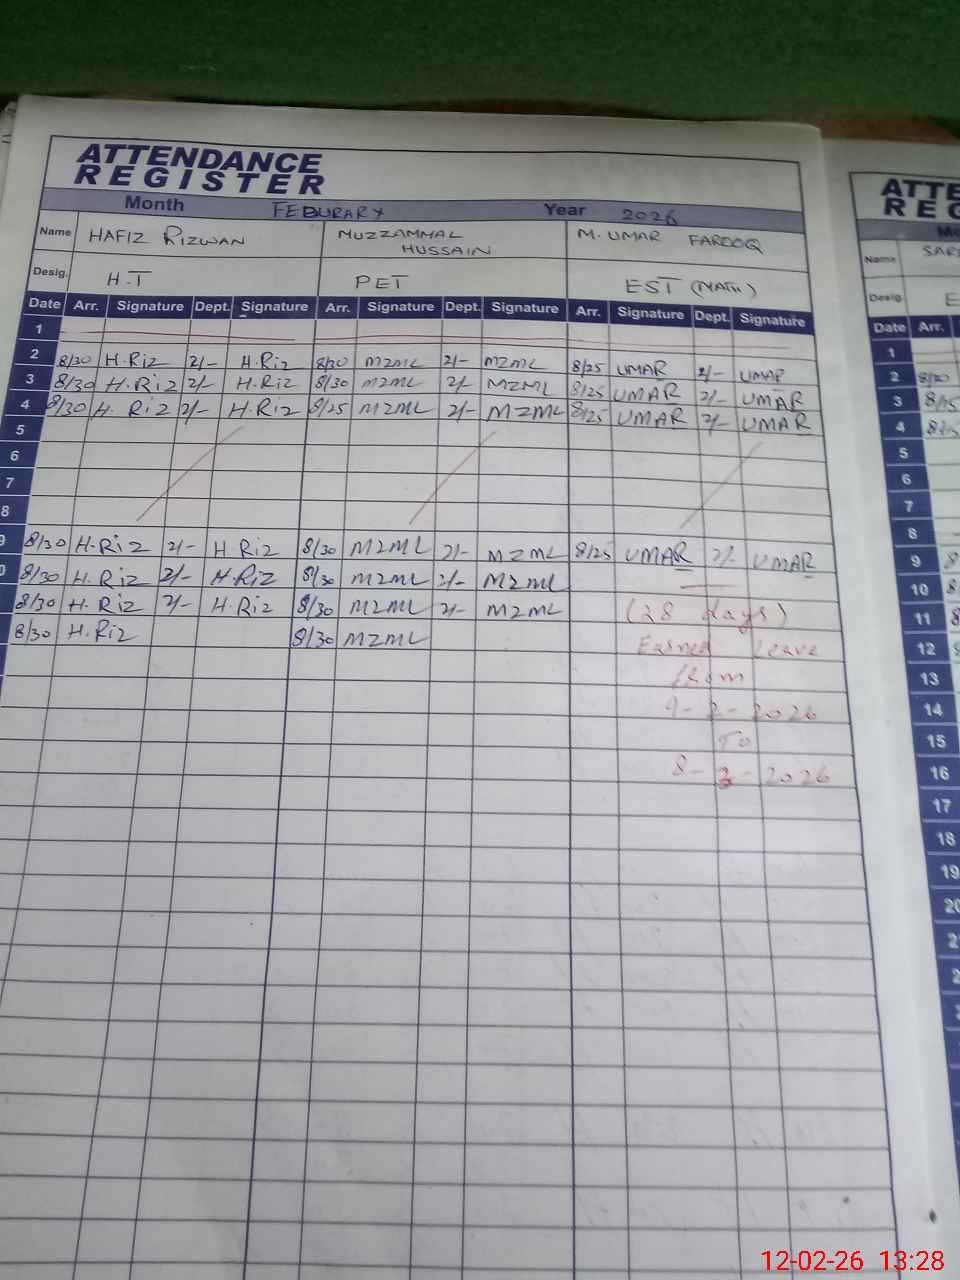 ATTENDANCE
REGISTER
Month FEBURARY Year 2026
Name HAFIZ RIZWAN MUZZAMMAL HUSSAIN M. UMAR FAROOQ
Desig. H.T PET EST (MATH)
Date Arr. Signature Dept. Signature Arr. Signature Dept. Signature Arr. Signature Dept. Signature
1
2 8/30 H.Riz 2/- H.Riz 8/30 MZML 2/- MZML 8/25 UMAR 2/- UMAR
3 8/30 H.Riz 2/- H.Riz 8/30 MZML 2/- MZML 8/25 UMAR 2/- UMAR
4 8/30 H.Riz 2/- H.Riz 8/25 MZML 2/- MZML 8/25 UMAR 2/- UMAR
5
6
7
8
9 8/30 H.Riz 2/- H.Riz 8/30 MZML 2/- MZML 8/25 UMAR 2/- UMAR
0 8/30 H.Riz 2/- H.Riz 8/30 MZML 2/- MZML
8/30 H.Riz 2/- H.Riz 8/30 MZML 2/- MZML (28 days)
8/30 H.Riz 8/30 MZML Earned Leave
from
9-2-2026
To
8-3-2026
ATTE
REG
Name SAR
Desig. E
Date Arr.
1
2 8/30
3 8/15
4 8/15
5
6
7
8
9 8
10 8
11 8
12 8
13
14
15
16
17
18
19
20
12-02-26 13:28